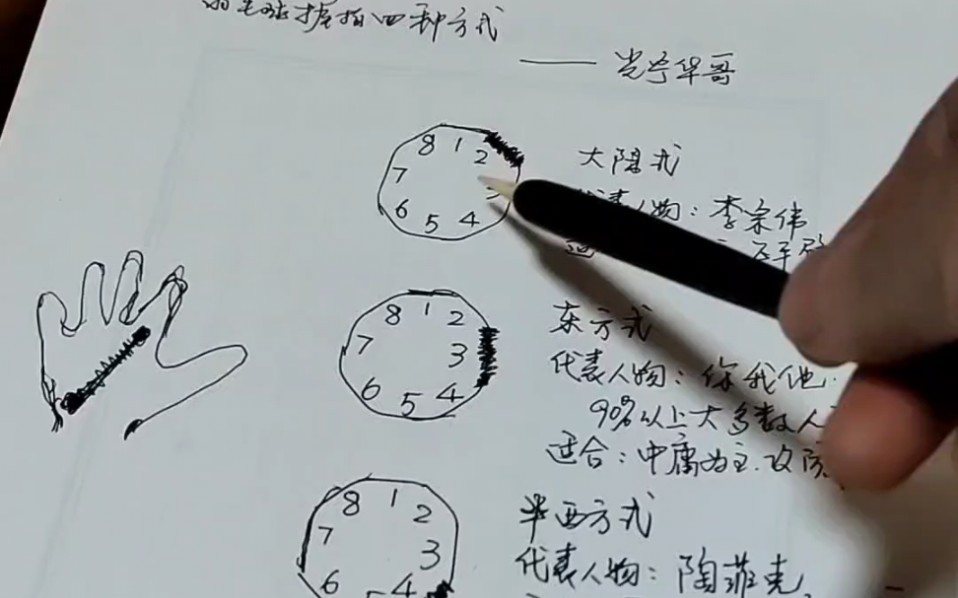 羽毛球握拍四种方式
——光宁华哥
8 1 2 3 4 5 6 7
大陆式
代表人物：李宗伟
适
8 1 2 3 4 5 6 7
东方式
代表人物：你我他
90%以上大多数人
适合：中庸为主.攻防
8 1 2 3 4 5 6 7
半西方式
代表人物：陶菲克